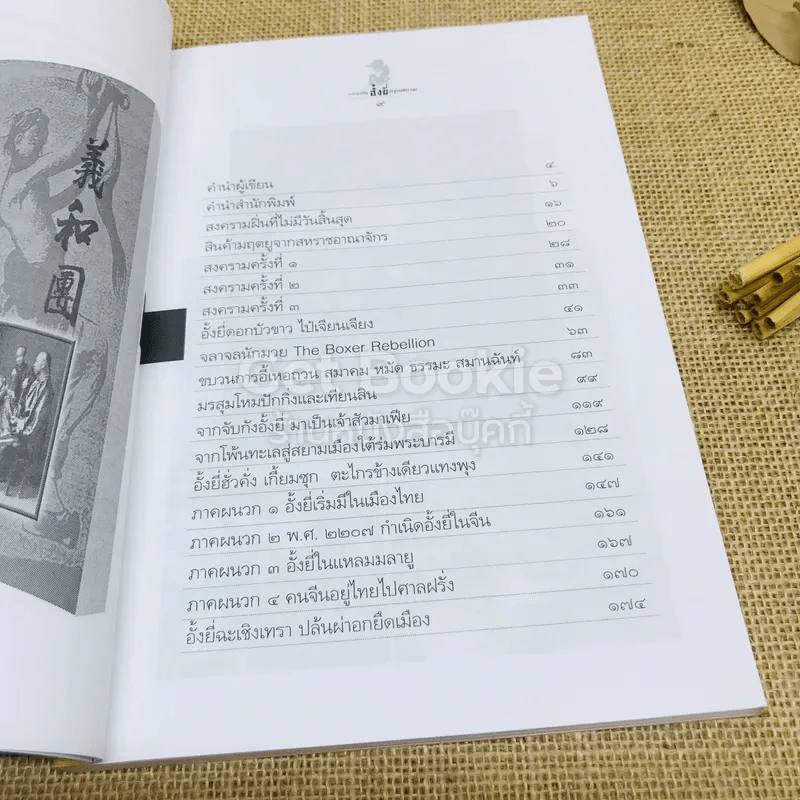 義和團
อั้งยี่
๙
คำนำผู้เขียน ๔
คำนำสำนักพิมพ์ ๖
สงครามฝิ่นที่ไม่มีวันสิ้นสุด ๑๖
สินค้ามฤตยูจากสหราชอาณาจักร ๒๐
สงครามครั้งที่ ๑ ๒๘
สงครามครั้งที่ ๒ ๓๑
สงครามครั้งที่ ๓ ๓๓
อั้งยี่ดอกบัวขาว ไป่เจียนเจียง ๔๑
จลาจลนักมวย The Boxer Rebellion ๖๓
ขบวนการอี้เหอถวน สมาคม หมัด ธรรมะ สมานฉันท์ ๘๓
มรสุมโหมปักกิ่งและเทียนสิน ๙๙
จากจับกังอั้งยี่ มาเป็นเจ้าสัวมาเฟีย ๑๑๙
จากโพ้นทะเลสู่สยามเมืองใต้ร่มพระบารมี ๑๒๘
อั้งยี่ฮั่วคั่ง เกี้ยมซุก ตะไกรข้างเดียวแทงพุง ๑๔๑
ภาคผนวก ๑ อั้งยี่เริ่มมีในเมืองไทย ๑๔๗
ภาคผนวก ๒ พ.ศ. ๒๒๐๗ กำเนิดอั้งยี่ในจีน ๑๖๑
ภาคผนวก ๓ อั้งยี่ในแหลมมลายู ๑๖๗
ภาคผนวก ๔ คนจีนอยู่ไทยไปศาลฝรั่ง ๑๗๐
อั้งยี่ฉะเชิงเทรา ปล้นผ่าอกยึดเมือง ๑๗๔
Get Bookie
ร้านหนังสือบุ๊คกี้